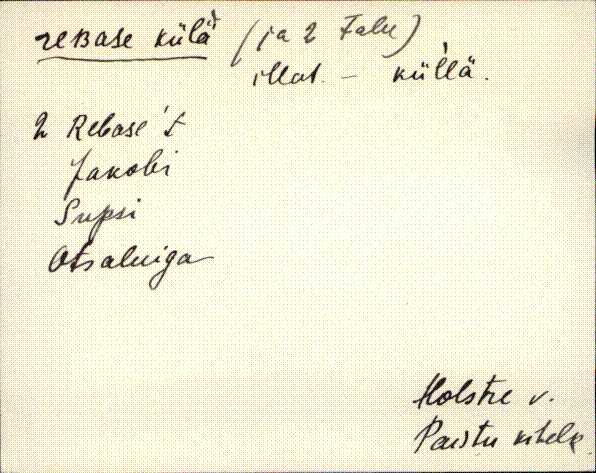 rebase külä (ja 2 talu)
illat. – küllä.
2 Rebase't
Jakobi
Supsi
Otsaluiga
Holstre v.
Paistu kihelk.